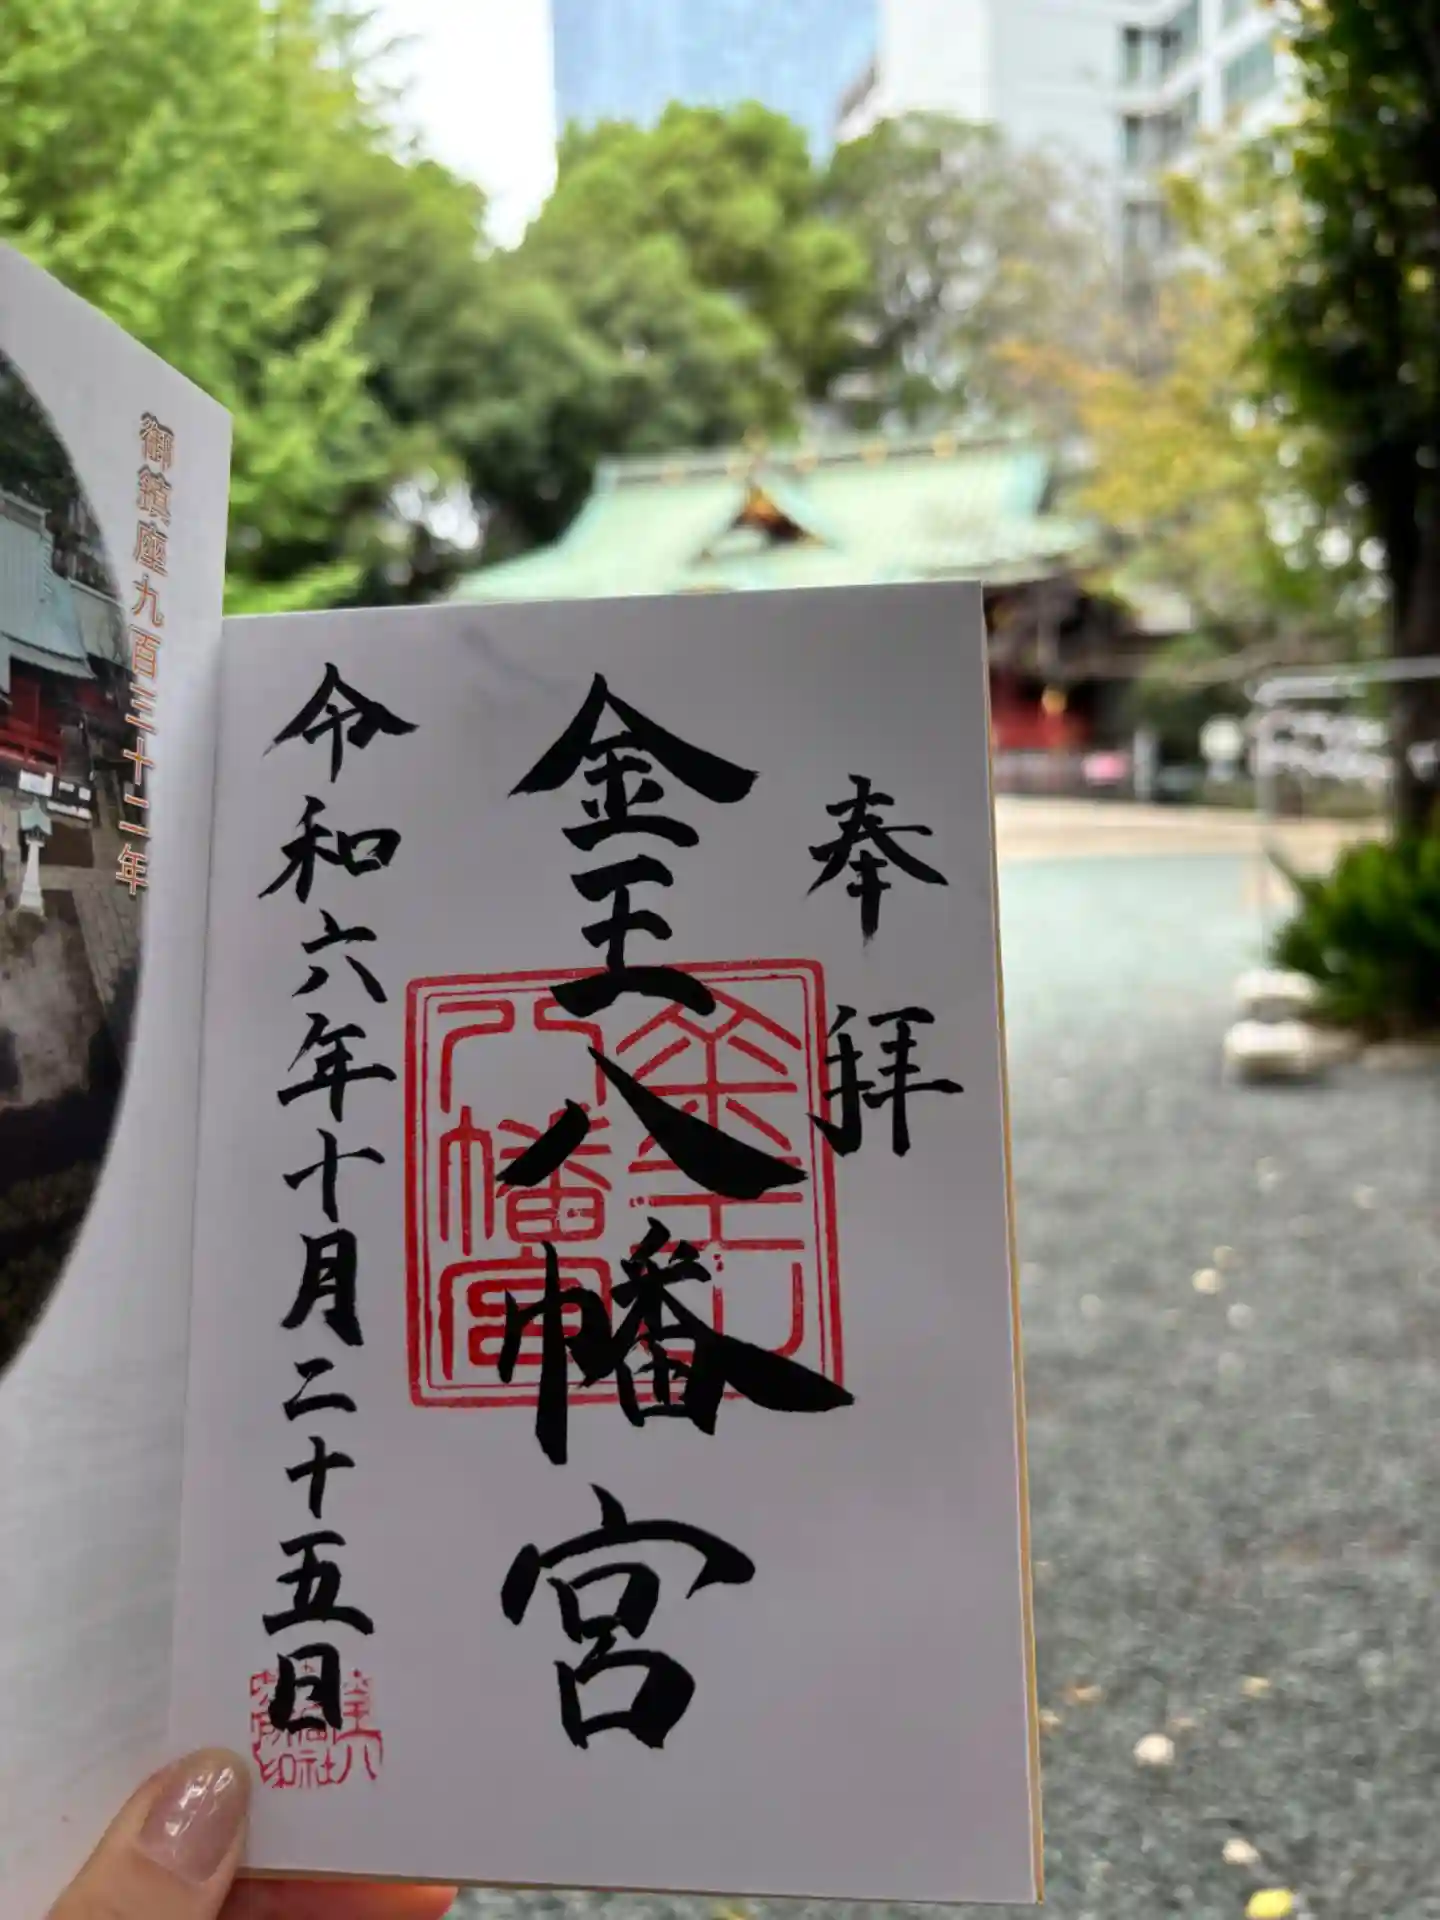 奉拝
金王八幡宮
令和六年十月二十五日
御鎮座九百三十二年
金王八幡宮